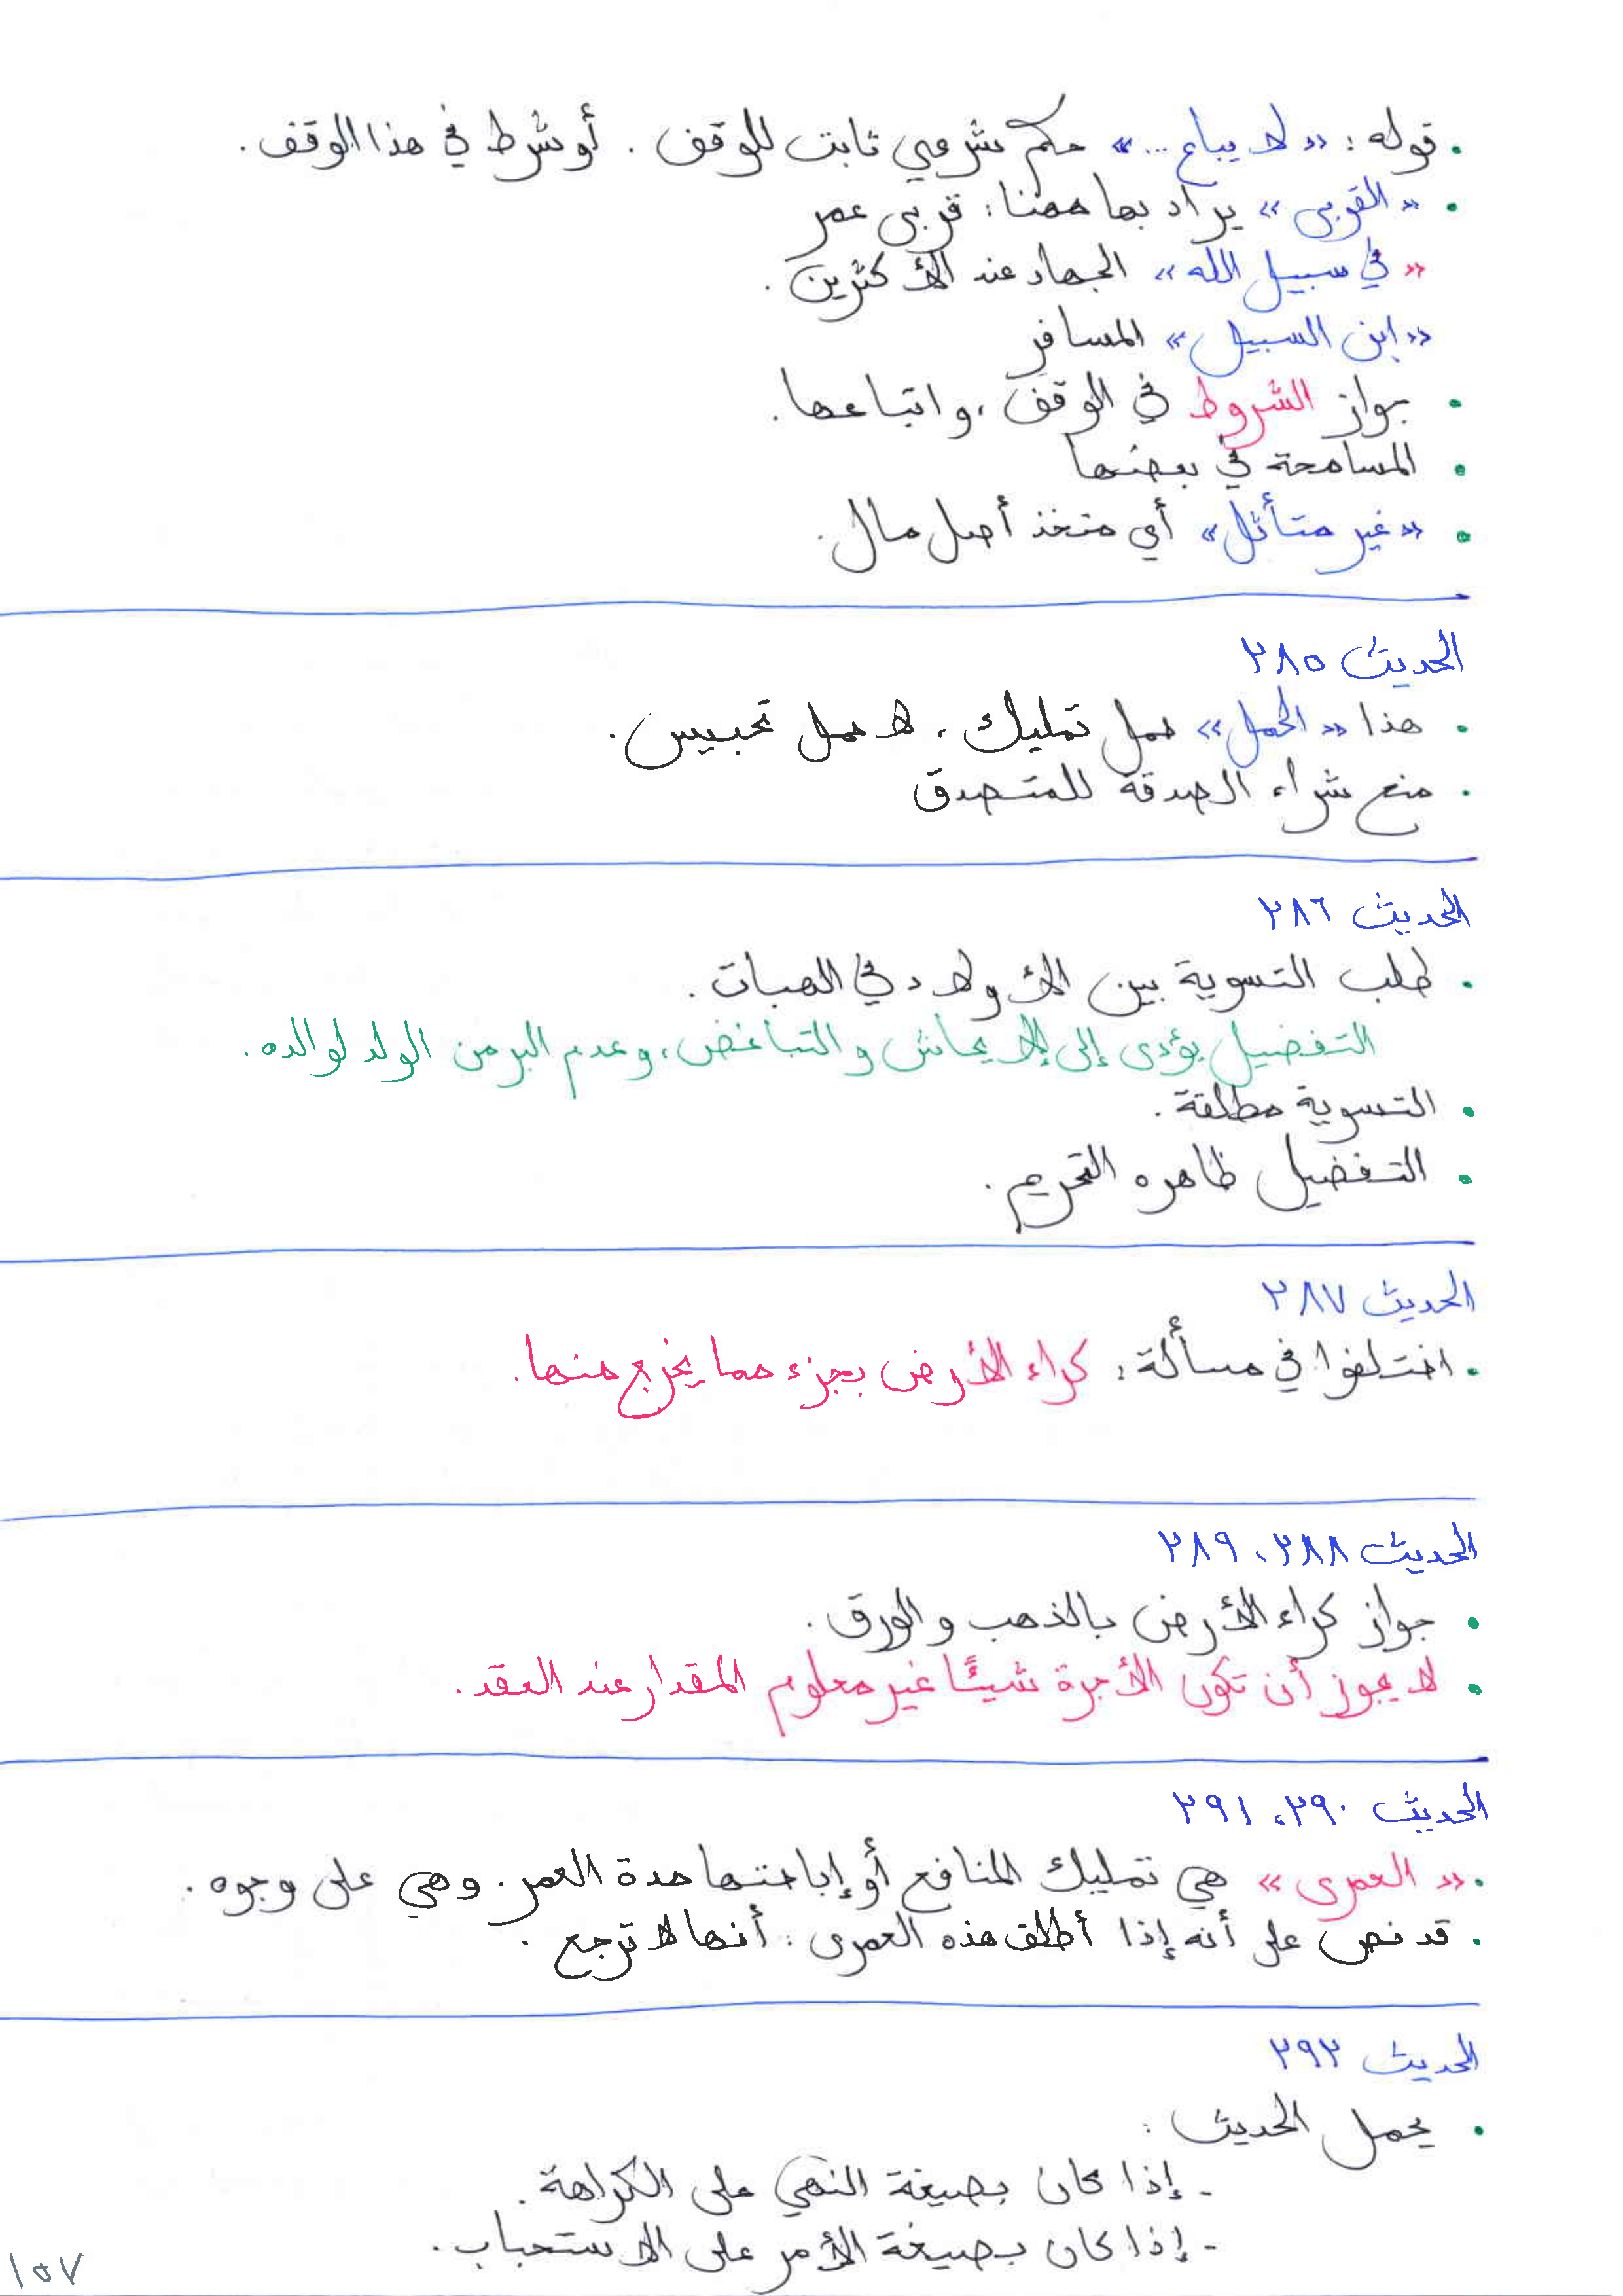 • قوله : «لا يباع ...» حكم شرعي ثابت للوقف . أو شرط في هذا الوقف .
• «القربى» يراد بها ههنا : قربى عمر
«في سبيل الله» الجهاد عند الأكثرين .
«ابن السبيل» المسافر
• جواز الشروط في الوقف ، واتباعها .
• المسامحة في بعضها
• «غير متأثل» أي متخذ أصل مال .
الحديث ٢٨٥
• هذا «الحمل» حمل تمليك ، لا حمل تحبيس .
• منع شراء الصدقة للمتصدق
الحديث ٢٨٦
• طلب التسوية بين الأولاد في الهبات .
التفضيل يؤدى إلى الإيحاش والتباغض ، وعدم البر من الولد لوالده .
• التسوية مطلقة .
• التفضيل ظاهره التحريم .
الحديث ٢٨٧
• اختلفوا في مسألة : كراء الأرض بجزء مما يخرج منها .
الحديث ٢٨٨ ، ٢٨٩
• جواز كراء الأرض بالذهب والورق .
• لا يجوز أن تكون الأجرة شيئًا غير معلوم المقدار عند العقد .
الحديث ٢٩٠ ، ٢٩١
• «العمرى» هي تمليك المنافع أو إباحتها مدة العمر . وهي على وجوه .
• قد نص على أنه إذا أطلق هذه العمرى : أنها لا ترجع .
الحديث ٢٩٢
• يحمل الحديث :
- إذا كان بصيغة النهي على الكراهة .
- إذا كان بصيغة الأمر على الاستحباب .
١٥٧